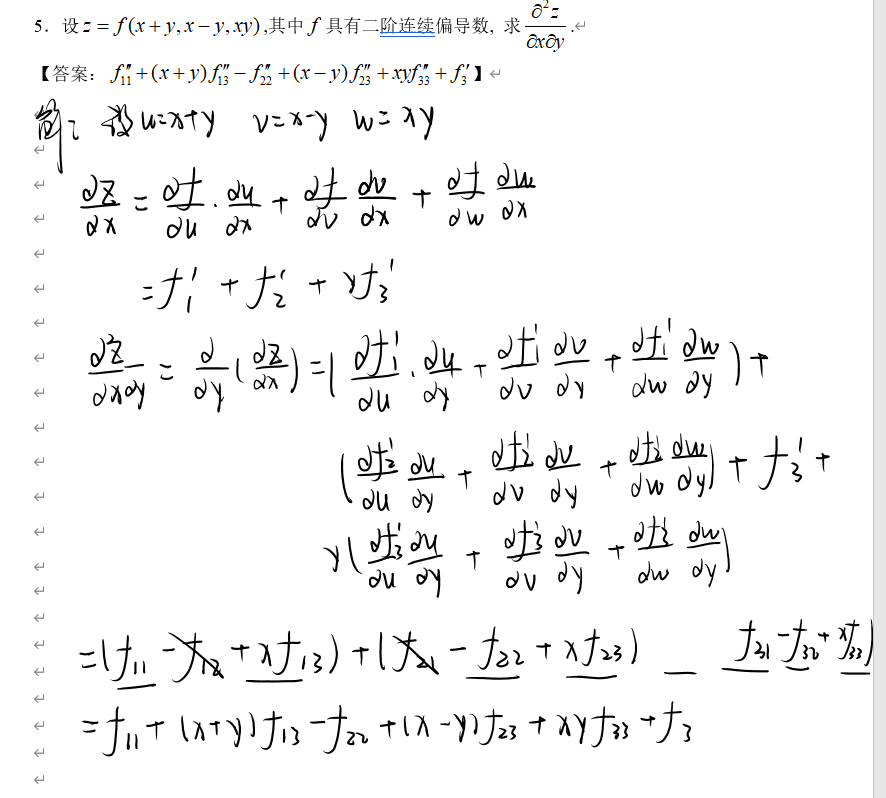 5．设 z = f(x+y, x−y, xy) ,其中 f 具有二阶连续偏导数, 求 ∂²z/∂x∂y .
【答案： f″₁₁+(x+y)f″₁₃−f″₂₂+(x−y)f″₂₃+xyf″₃₃+f′₃】
设 u=x+y v=x-y w=xy
∂z/∂x = ∂f/∂u · ∂u/∂x + ∂f/∂v ∂v/∂x + ∂f/∂w ∂w/∂x
= f₁′ + f₂′ + yf₃′
∂²z/∂x∂y = ∂/∂y (∂z/∂x) = (∂f₁′/∂u · ∂u/∂y + ∂f₁′/∂v ∂v/∂y + ∂f₁′/∂w ∂w/∂y) +
(∂f₂′/∂u ∂u/∂y + ∂f₂′/∂v ∂v/∂y + ∂f₂′/∂w ∂w/∂y) + f₃′ +
y(∂f₃′/∂u ∂u/∂y + ∂f₃′/∂v ∂v/∂y + ∂f₃′/∂w ∂w/∂y)
=(f₁₁ - f₁₂ + xf₁₃) + (f₂₁ - f₂₂ + xf₂₃) f₃₁ - f₃₂ + xf₃₃)
= f₁₁ + (x+y)f₁₃ - f₂₂ + (x-y)f₂₃ + xyf₃₃ + f₃